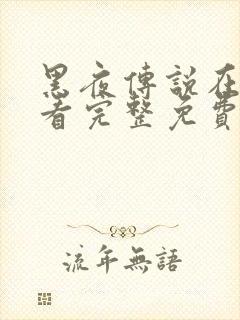 黑夜傳說在
看完整免費
流年無語